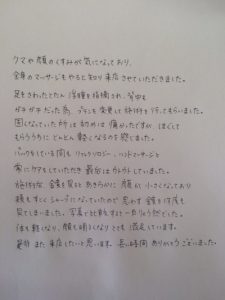 クマや顔のくすみが気になっており、
全身のマッサージもやると知り来店させていただきました。
足をさわったとたん浮腫を指摘され、背中も
ガチガチだった為、プランを変更して施術を行ってもらいました。
固くなっていた所は初めは痛かったですが、ほぐして
もらううちにどんどん軽くなるのを感じました。
パックをしている間もリフレクソロジー、ハンドマッサージと
常にケアをしていただき最后はウトウトしていました。
施術後、全体を見るとあきらかに顔が小さくなっており
頬もすごくシャープになっていたので思わず鏡を何度も
見てしまいました。写真で比較すると一目りょう然でした。
体も軽くなり、顔も明るくなりとても満足しています。
是非また来店したいと思います。長い時間ありがとうございました。